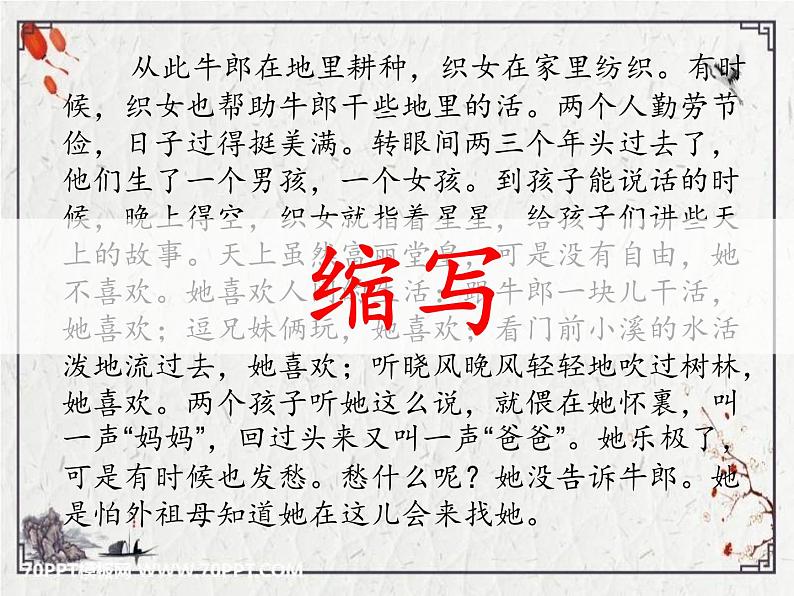 从此牛郎在地里耕种，织女在家里纺织。有时
候，织女也帮助牛郎干些地里的活。两个人勤劳节
俭，日子过得挺美满。转眼间两三个年头过去了，
他们生了一个男孩，一个女孩。到孩子能说话的时
候，晚上得空，织女就指着星星，给孩子们讲些天
上的故事。天上虽然高丽堂皇，可是没有自由，她
不喜欢。她喜欢人间的生活：跟牛郎一块儿干活，
她喜欢；逗兄妹俩玩，她喜欢；看门前小溪的水活
缩写
泼地流过去，她喜欢；听晓风晚风轻轻地吹过树林，
她喜欢。两个孩子听她这么说，就偎在她怀裏，叫
一声“妈妈”，回过头来又叫一声“爸爸”。她乐极了，
可是有时候也发愁。愁什么呢？她没告诉牛郎。她
是怕外祖母知道她在这儿会来找她。
70PPT模板网 WWW.70PPT.COM